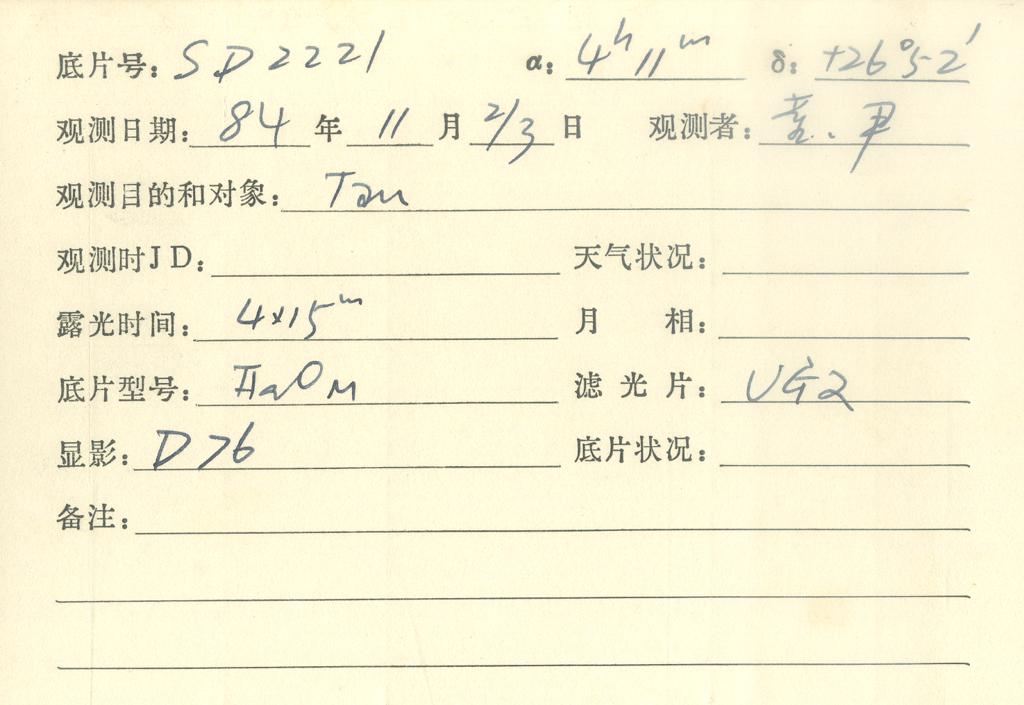 底片号: SD2221 α: 4ʰ11ᵐ δ: +26°52′
观测日期: 84 年 11 月 2/3 日 观测者:
观测目的和对象: Tau
观测时JD: 天气状况:
露光时间: 4×15ᵐ 月 相:
底片型号: IIaO M 滤光片: UG2
显影: D76 底片状况:
备注: